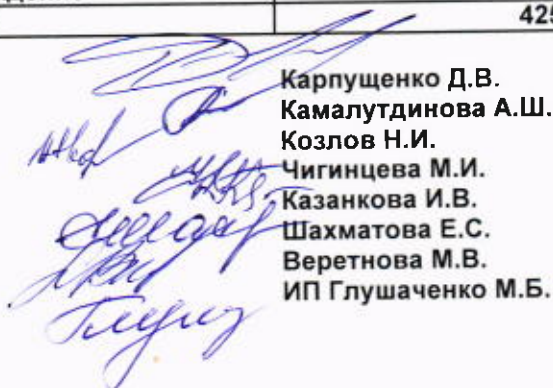 425
Карпущенко Д.В.
Камалутдинова А.Ш.
Козлов Н.И.
Чигинцева М.И.
Казанкова И.В.
Шахматова Е.С.
Веретнова М.В.
ИП Глушаченко М.Б.